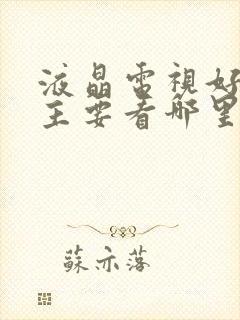 液晶電視好
主要看哪里
蘇亦落